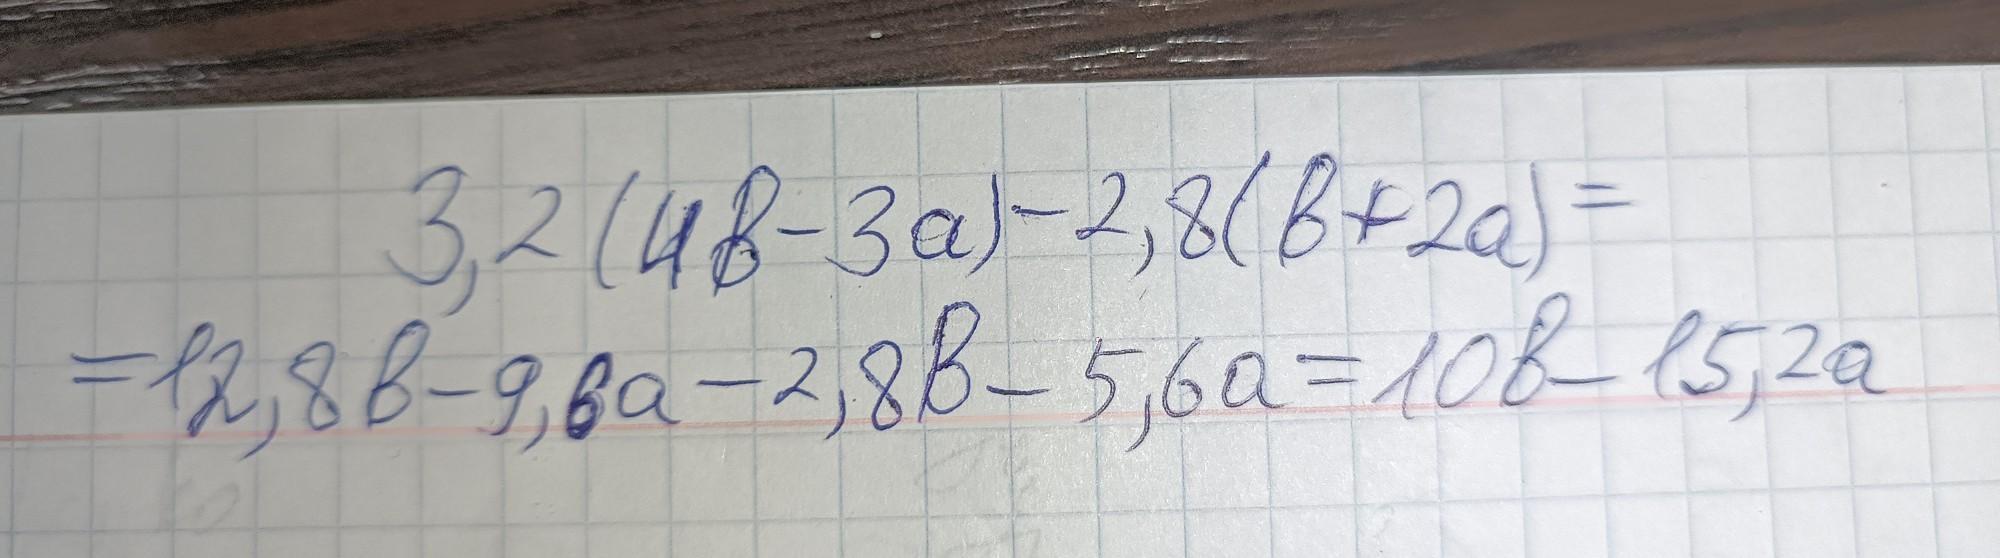 3,2(4b-3a)-2,8(b+2a)=
=12,8b-9,6a-2,8b-5,6a=10b-15,2a